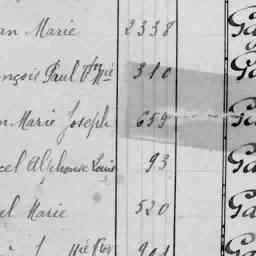 an Marie 2338 Ga
ançois Paul 310 Ga
n Marie Joseph 659 Ga
cel Alphonse Louis 93 Ga
el Marie 520 Ga